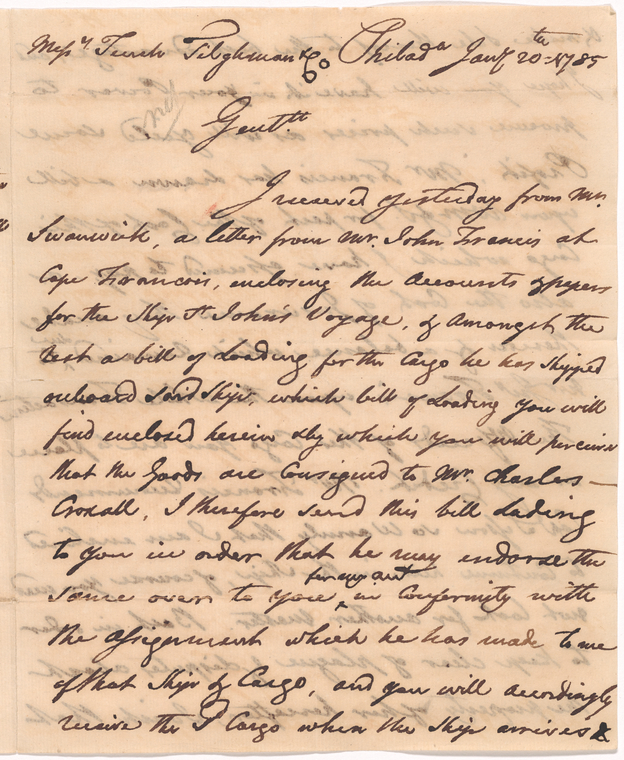 Messrs Tench Tilghman & Co Philada Jany 20th 1785
Gentn
I received yesterday from Mr.
Swanwick, a letter from Mr. John Francis at
Cape Francois, enclosing the Accounts & papers
for the Ship St John's Voyage, & amongst the
rest a bill of Loading for the Cargo he has Shipped
onboard said Ship, which bill of Loading you will
find enclosed herein & by which you will perceive
that the Goods are Consigned to Mr. Charles
Croxall, I therefore send this bill Lading
to you in order that he may endorse the
for my acct
same over to you, in Conformity with
the Assignment which he has made to me
of that Ship & Cargo, and you will accordingly
receive the Sd Cargo when the Ship arrives &